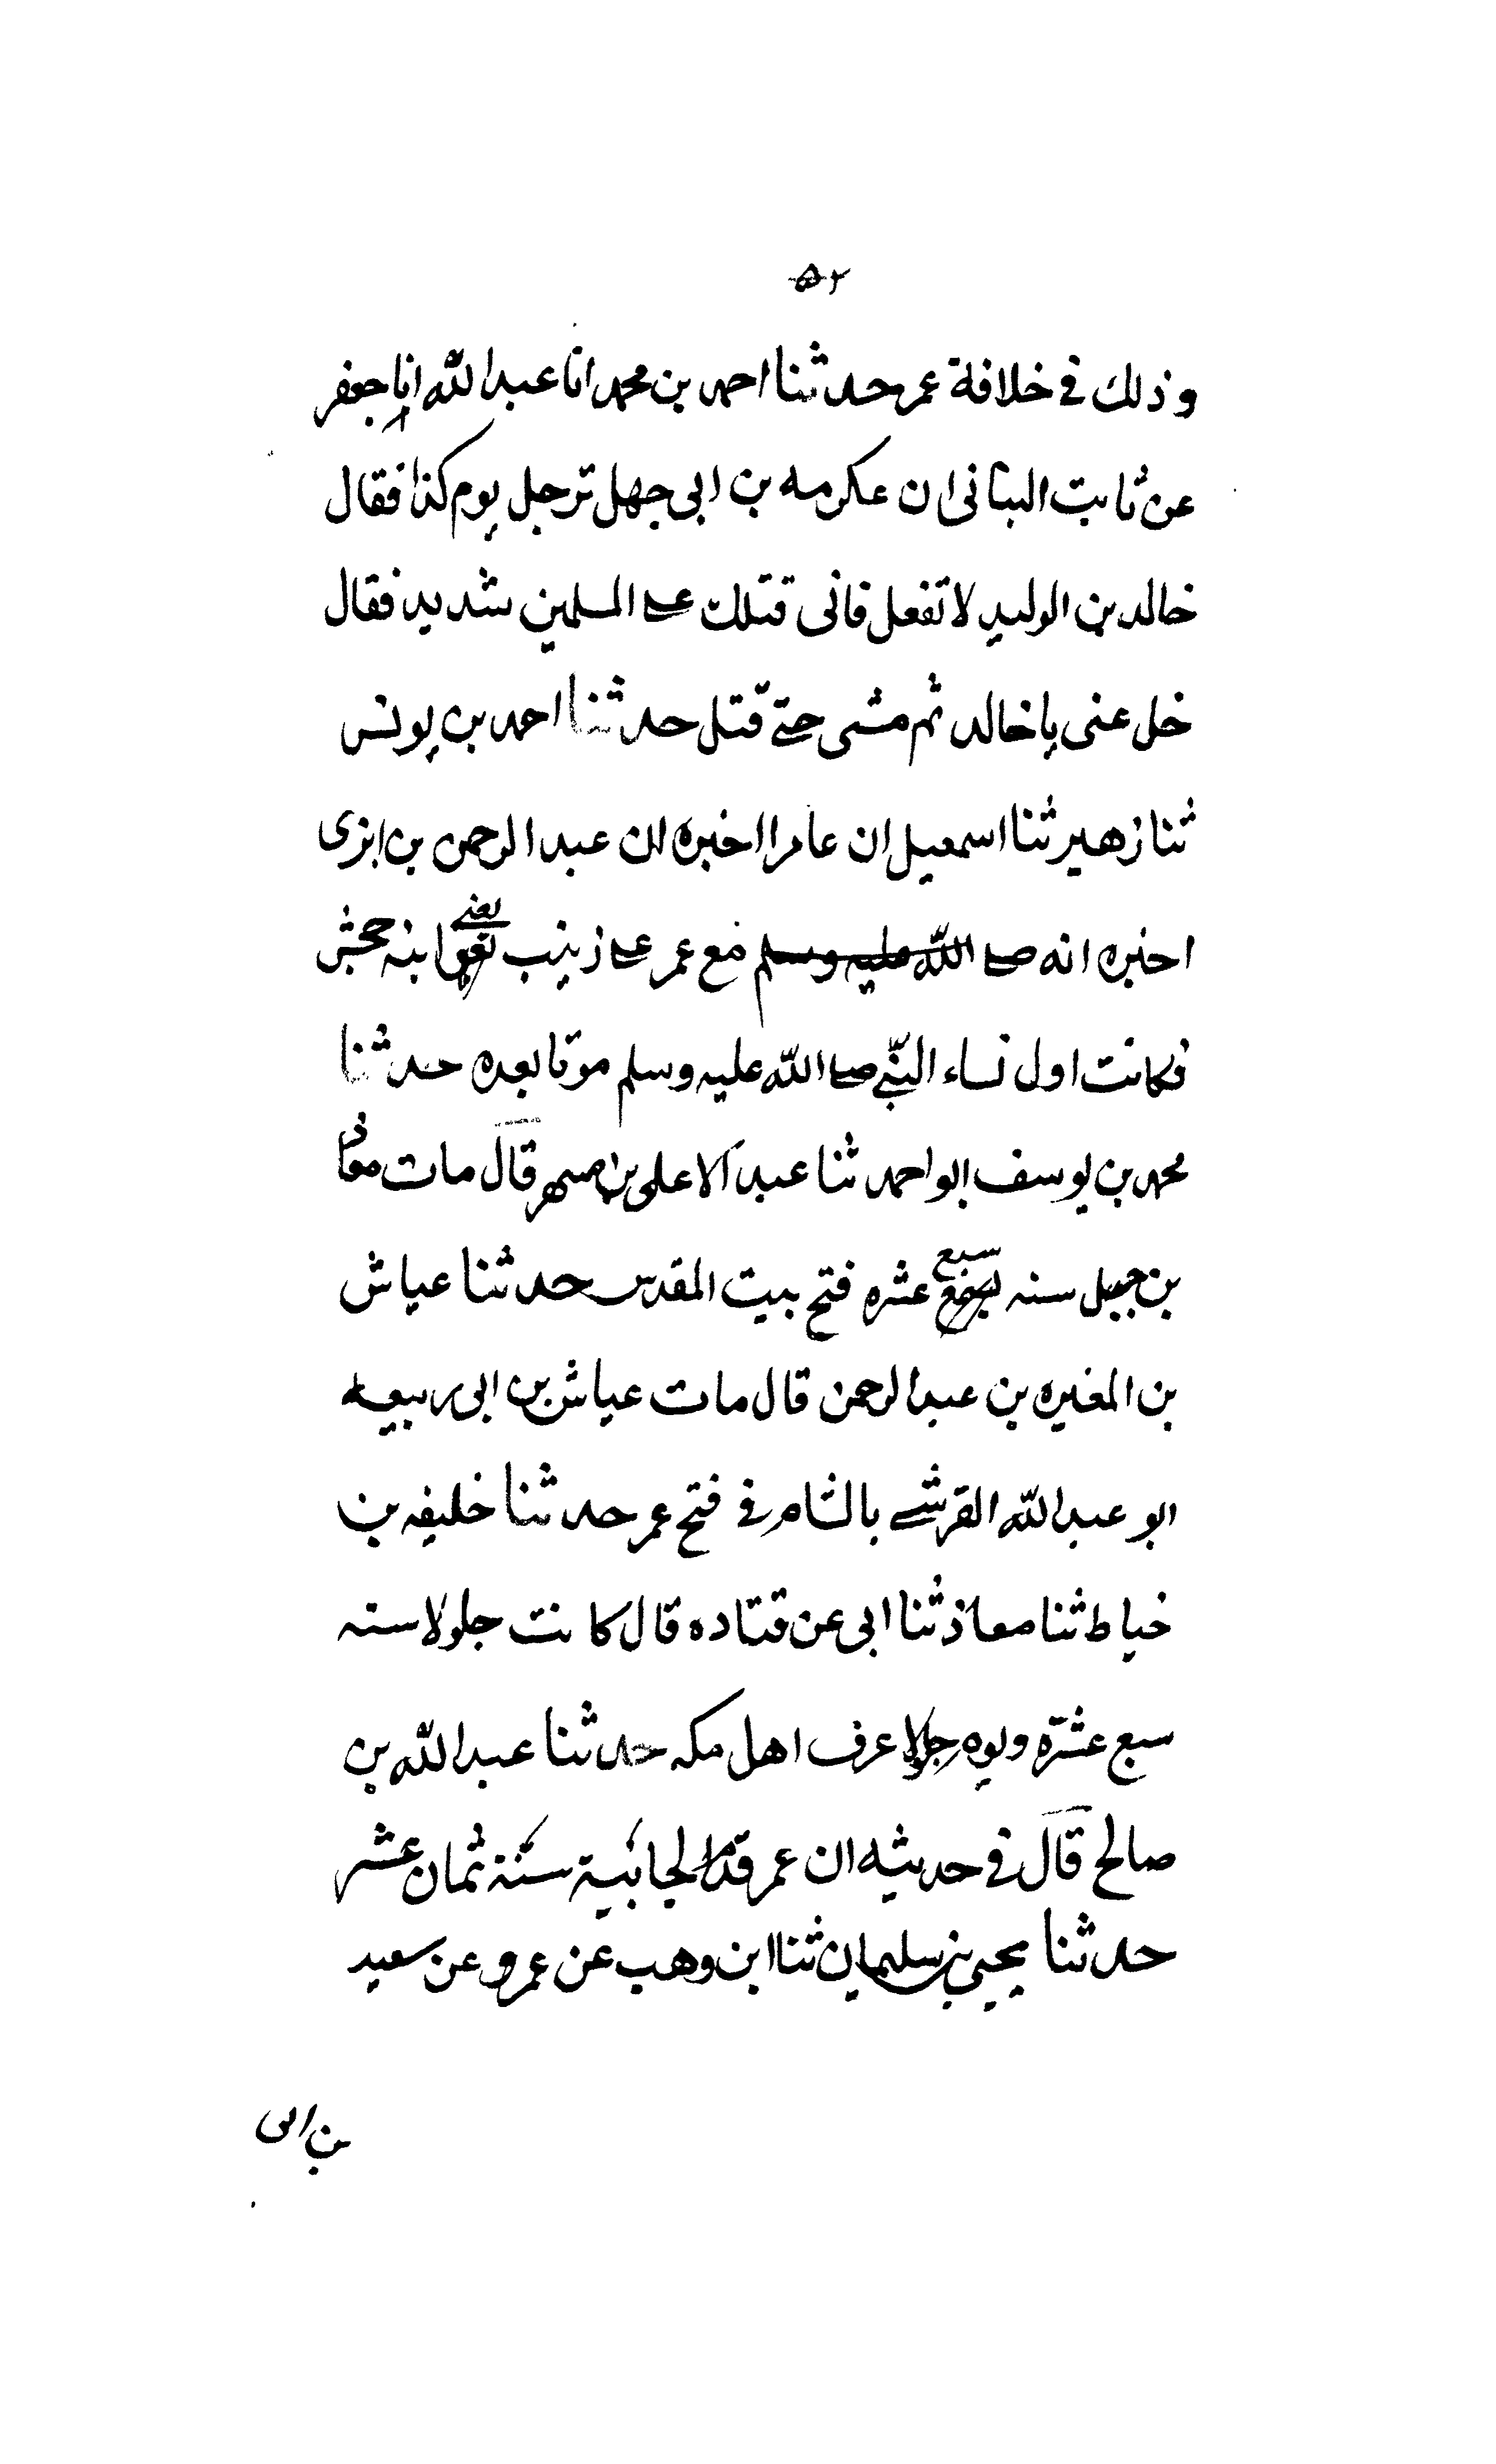 ٥٢
وذلك في خلافة عمر حدثنا احمد بن محمد انا عبد الله انا جعفر
عن ثابت البنانى ان عكرمه بن ابى جهل ترجل يوم كذا فقال
خالد بن الوليد لا تفعل فانى قتلك على المسلمين شديد فقال
خل عنى يا خالد ثم مشى حتى قتل حدثنا احمد بن يونس
ثنا زهير ثنا اسمعيل ان عامرا اخبره ان عبد الرحمن بن ابزى
اخبره انه صلى الله عليه وسلم مع عمر على زينب يعنى ابنه جحش
فكانت اول نساء النبي صلى الله عليه وسلم موتا بعده حدثنا
محمد بن يوسف ابو احمد ثنا عبد الاعلى بن مسهر قال مات معاذ
بن جبل سنه سبع عشره فتح بيت المقدس حدثنا عياش
بن المغيره بن عبد الرحمن قال مات عياش بن ابى ربيعه
ابو عبد الله القرشي بالشام في فتح عمر حدثنا خليفه بن
خياط ثنا معاذ ثنا ابى عن قتاده قال كانت جلولا سنه
سبع عشرة ويوم عرف اهل مكه حدثنا عبد الله بن
صالح قال في حديثه ان عمر قدم الجابية سنة ثمان عشر
حدثنا يحيى بن سليمان ثنا ابن وهب عن عمرو عن سعيد
بن ابى